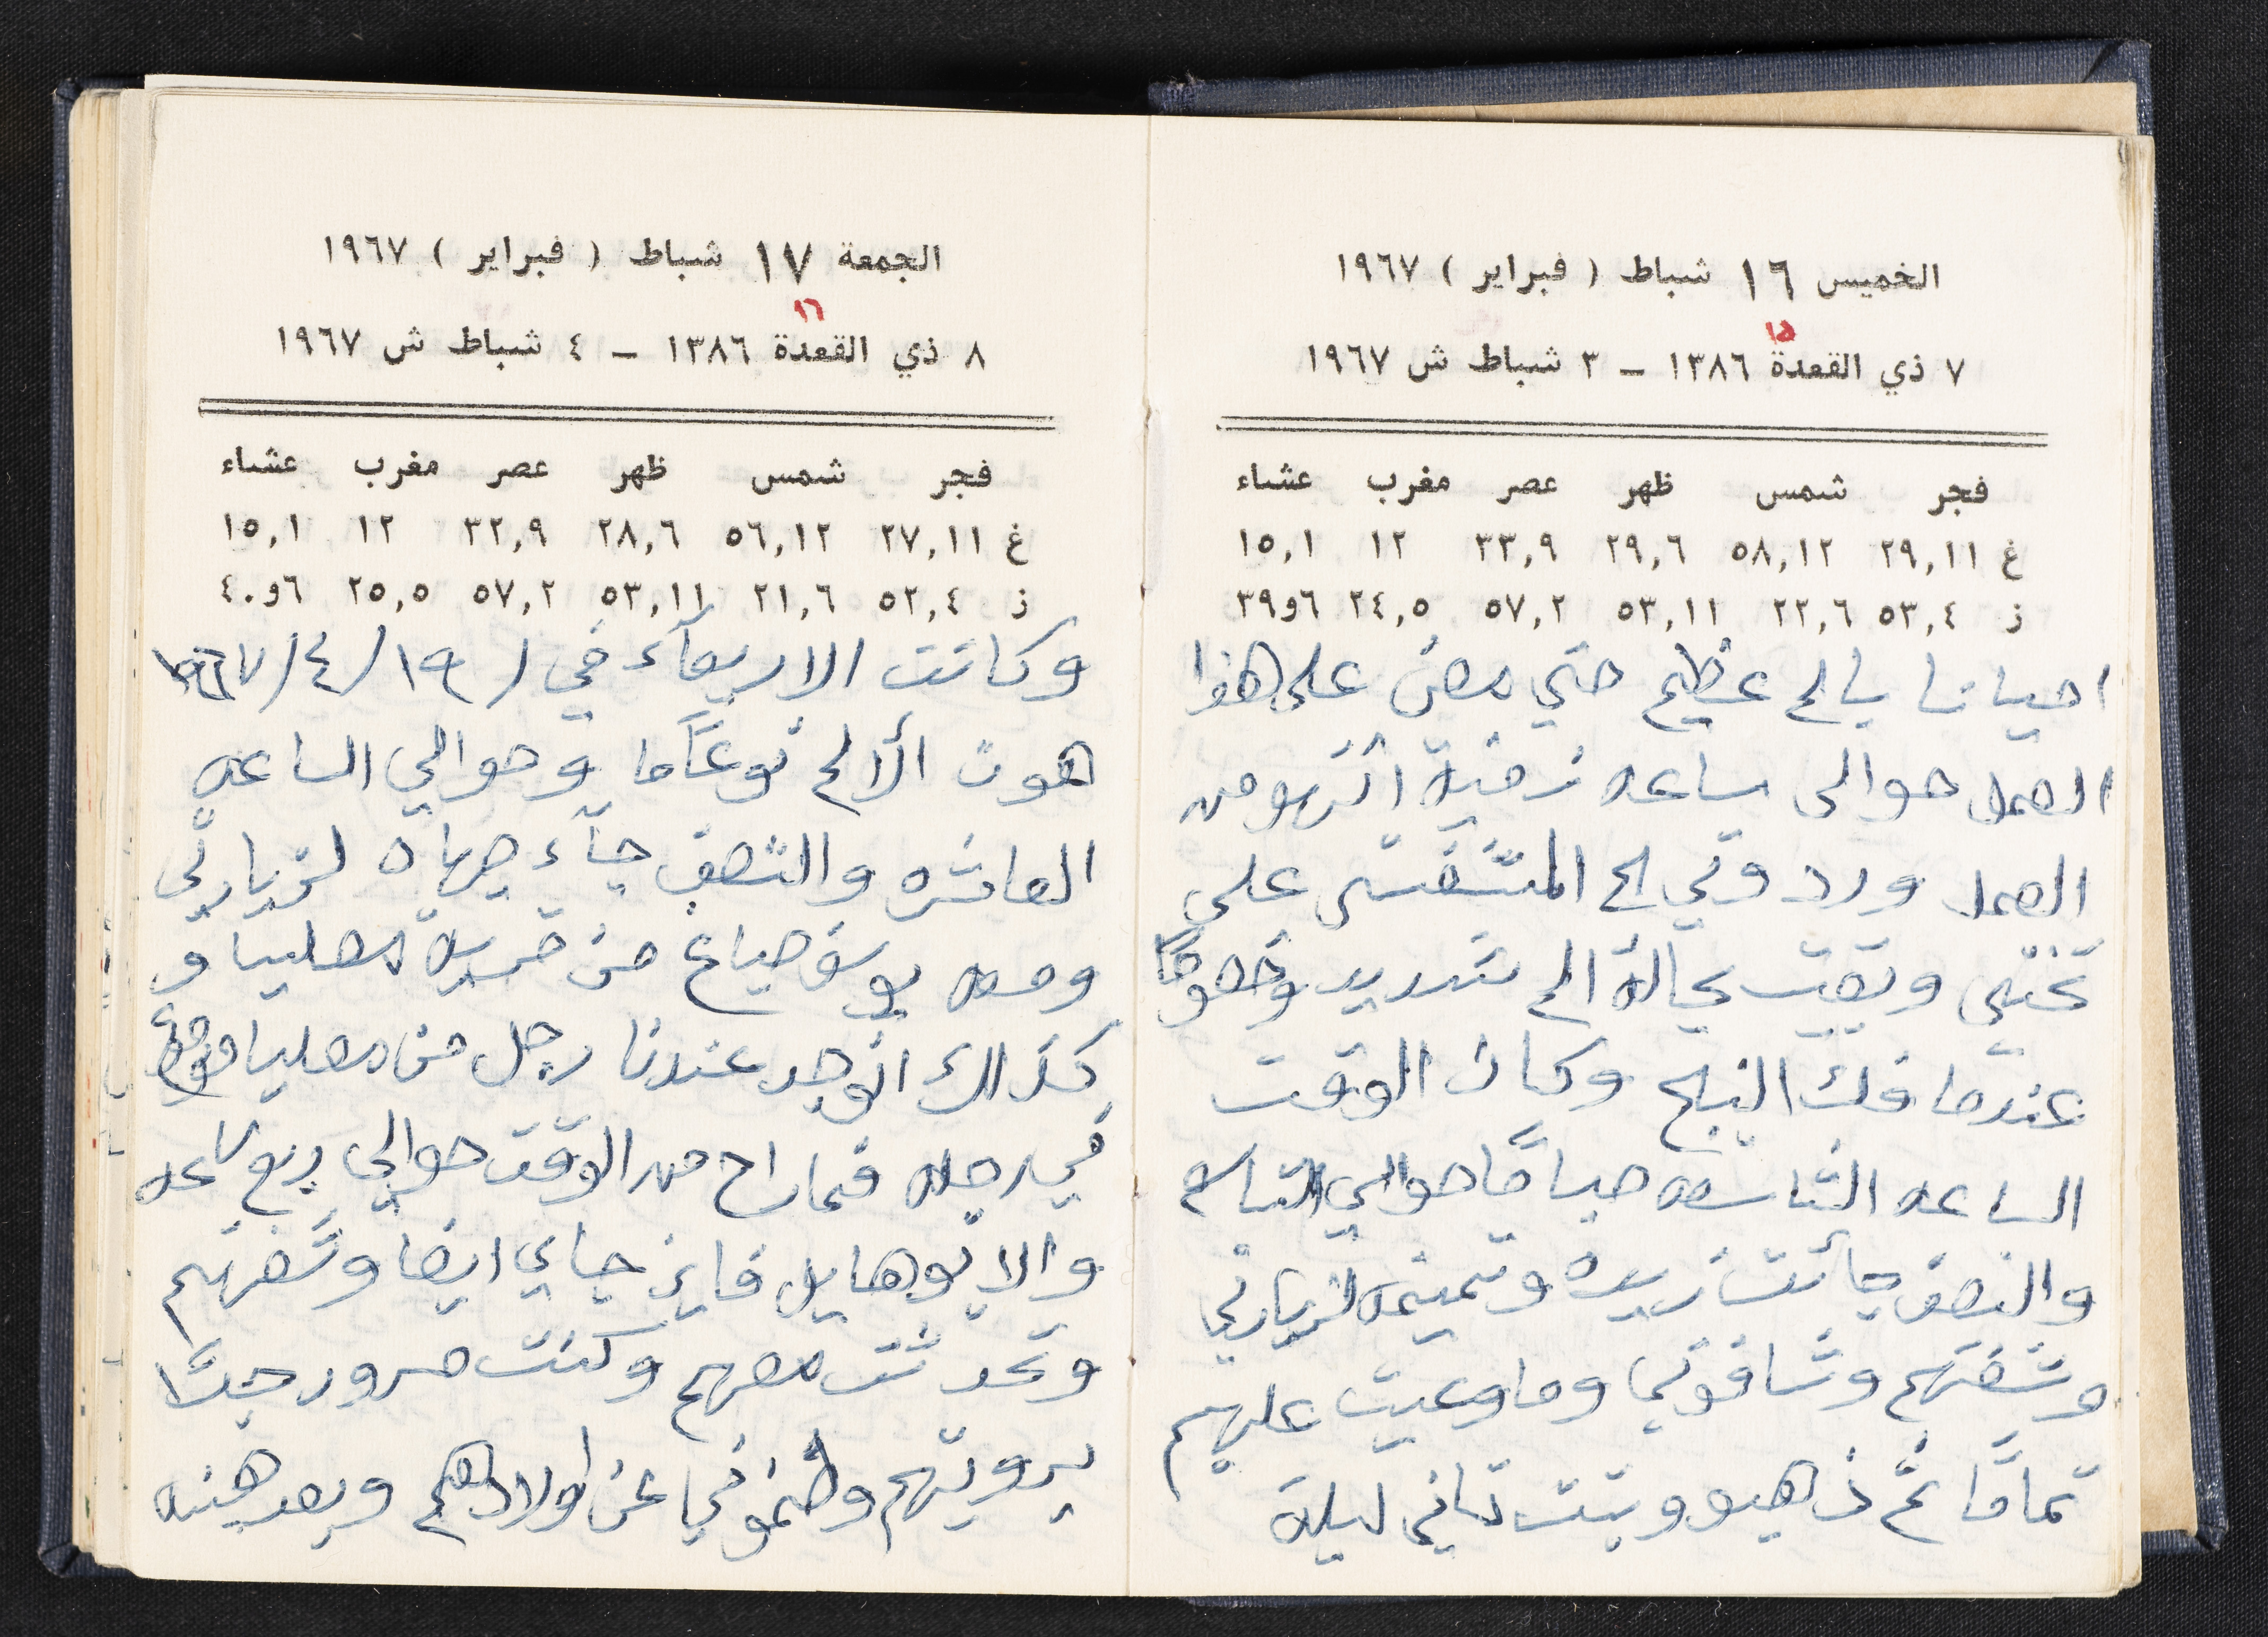 الخميس ١٦ شباط ( فبراير ) ١٩٦٧
١٥
٧ ذي القعدة ١٣٨٦ – ٣ شباط ش ١٩٦٧
فجر شمس ظهر عصر مغرب عشاء
غ ٢٩,١١ ٥٨,١٢ ٢٩,٦ ٣٣,٩ ١٢ ١٥,١
ز ٥٣,٤ ٢٢,٦ ٥٣,١١ ٥٧,٢ ٢٤,٥ ٦و٣٩
احيانا بالم عظيم حتي مضى على هذا
العمل حوالى ساعه زمنية انتهو من
العمل وردوني الى المتشفى على
تختي وبقيت بحالة الم شديد وخصوصًا
عندما فك البنج وكان الوقت
الساعه التاسعه صباحًا حوالي التاسعه
والنصف جائت زيده وتمينه لزيارتي
وشفتهم وشافوني وما وعيت عليهم
تمامًا ثم ذهبو وبتت ثاني ليلة
الجمعة ١٧ شباط ( فبراير ) ١٩٦٧
١٦
٨ ذي القعدة ١٣٨٦ – ٤ شباط ش ١٩٦٧
فجر شمس ظهر عصر مغرب عشاء
غ ٢٧,١١ ٥٦,١٢ ٢٨,٦ ٣٢,٩ ١٢ ١٥,١
ز ٥٢,٤ ٢١,٦ ٥٣,١١ ٥٧,٢ ٢٥,٥ ٦و٤٠
وكانت الاربعآء في ١٩/٤/١٩٦٧
هون الألم نوعًا ما وحوالي الساعه
العاشره والنصف جآء لزيارتي
ومعه يوسف صياغ من قرية معليا و
كذالك انوجد عندنا رجل من معليا
في رجله فما راح من الوقت حوالي ربع ساعه
والا بوهايل فايز جاي ايضا وشفتهم
وتحدثت معهم وكنت مسرور جدًا
برويتهم وطمنوني عن اولادهم وبعد هنيه